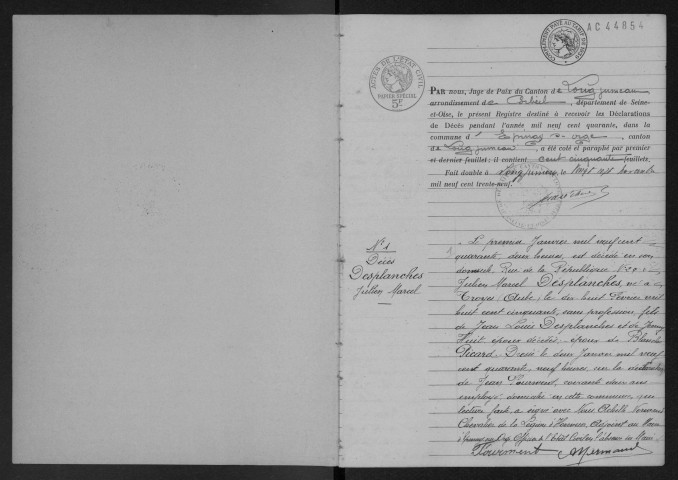 AC 44854
ACTES DE L'ÉTAT CIVIL
PAPIER SPÉCIAL
5F
PAR nous, Juge de Paix du Canton de Longjumeau
arrondissement de Corbeil, département de Seine-
et-Oise, le présent Registre destiné à recevoir les Déclarations
de Décès pendant l'année mil neuf cent quarante, dans la
commune d'Epinay s- orge, canton
de Longjumeau, a été coté et paraphé par premier
et dernier feuillet; il contient cent cinquante feuillets.
Fait double à Longjumeau, le vingt sept novembre
mil neuf cent trente-neuf.
N° 1
Décès
Desplanches
Julien Marcel
Le premier Janvier mil neuf cent
quarante deux heures, est décédé en son
domicile Rue de la République N° 29
Julien Marcel Desplanches, né à
Troyes (Aube) le dix huit Février mil
huit cent cinquante, sans profession, fils
de Jean Louis Desplanches et de
époux décédés, époux de Blanche
Picard. Dressé le deux Janvier mil neuf
cent quarante, neuf heures, sur la déclaration
de Jean
employé domicilié en cette commune, qui
lecture faite a signé avec Nous
Chevalier de la Légion d'Honneur Adjoint au Maire
Officier de l'Etat Civil en l'absence du Maire